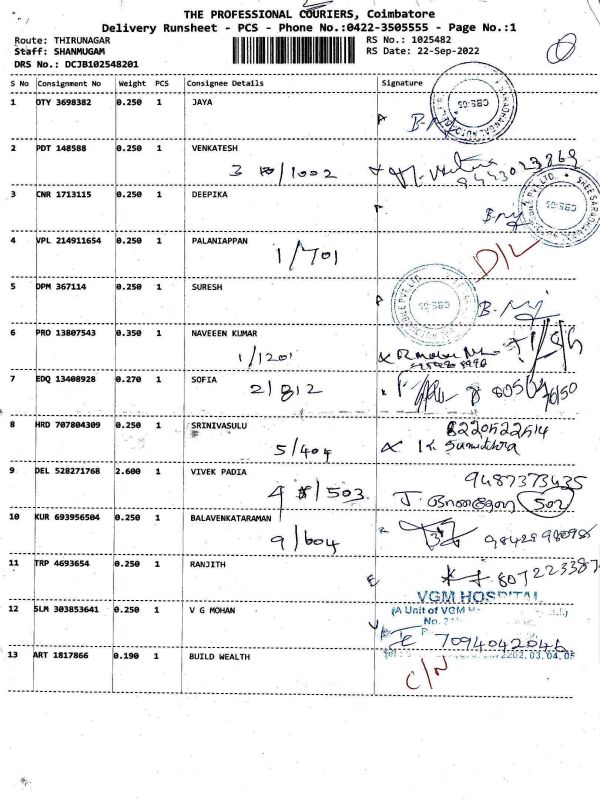 THE PROFESSIONAL COURIERS, Coimbatore
Delivery Runsheet - PCS - Phone No.:0422-3505555 - Page No.:1
Route: THIRUNAGAR RS No.: 1025482
Staff: SHANMUGAM RS Date: 22-Sep-2022
DRS No.: DCJB102548201
S No Consignment No Weight PCS Consignee Details Signature
1 OTY 3698382 0.250 1 JAYA
CBS-05
2 PDT 148588 0.250 1 VENKATESH
3 /1002
3 CNR 1713115 0.250 1 DEEPIKA
CBS-05
4 VPL 214911654 0.250 1 PALANIAPPAN
1/701 D/L
5 DPM 367114 0.250 1 SURESH
CBS-05
6 PRO 13807543 0.350 1 NAVEEEN KUMAR
1/1201
7 EDQ 13408928 0.270 1 SOFIA
2/812
8 HRD 707804309 0.250 1 SRINIVASULU
8220522514
5/404 K. Sumithra
9 DEL 528271768 2.600 1 VIVEK PADIA
9487373435
4 /503 502
10 KUR 693956504 0.250 1 BALAVENKATARAMAN
9/604
11 TRP 4693654 0.250 1 RANJITH
VGM HOSPITAL
12 SLM 303853641 0.250 1 V G MOHAN
(A Unit of VGM
7094042046
13 ART 1817866 0.190 1 BUILD WEALTH
C/N